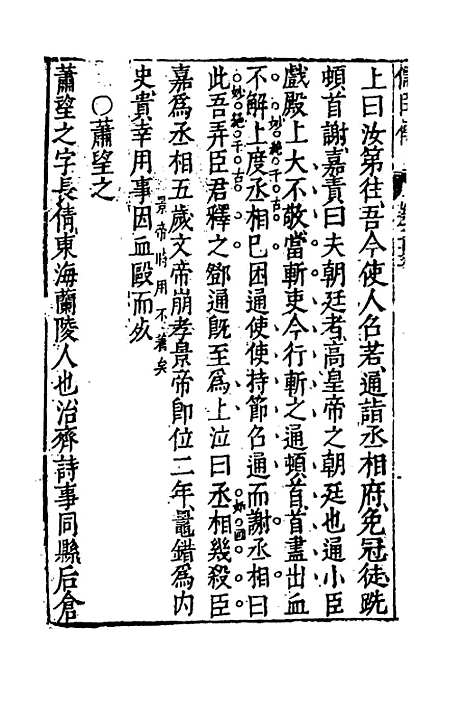 上曰汝第往吾今使人召若通詣丞相府免冠徒跣
頓首謝嘉責曰夫朝廷者高皇帝之朝廷也通小臣
戲殿上大不敬當斬吏今行斬之通頓首首盡出血
妙絕千古
不解上度丞相已困通使使持節召通而謝丞相曰
妙絕千古
此吾弄臣君釋之鄧通既至爲上泣曰丞相幾殺臣
嘉爲丞相五歲文帝崩孝景帝卽位二年鼂錯爲内
景帝時用不著矣
史貴幸用事因血毆而死
○蕭望之
蕭望之字長倩東海蘭陵人也治齊詩事同縣后倉